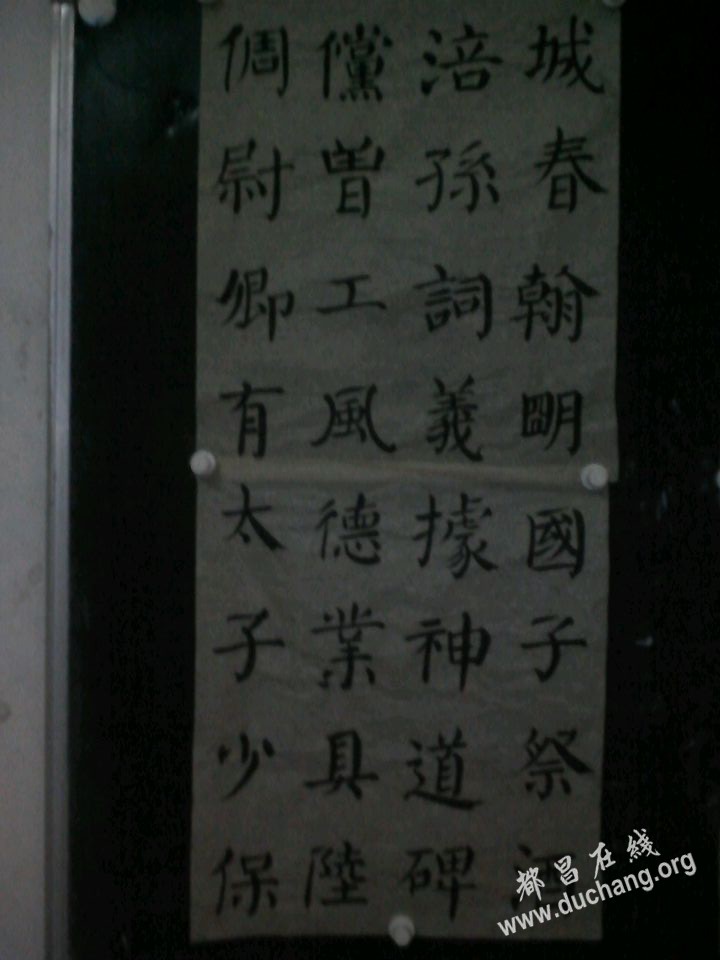 城春翰眀國子祭
涪孫詞義據神道碑
儻曾工風德業具陸
倜尉卿有太子少保
都昌在线
www.duchang.org